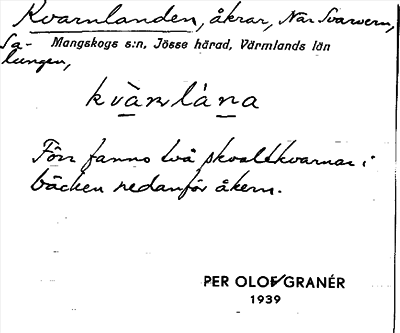 Kvarnlanden, åkrar, När Svarvern,
Sa-
Mangskogs s:n, Jösse härad, Värmlands län
lungen,
kvàrnlána
Förr fanns två skvaltkvarnar i
bäcken nedanför åkern.
PER OLOF GRANÉR
1939